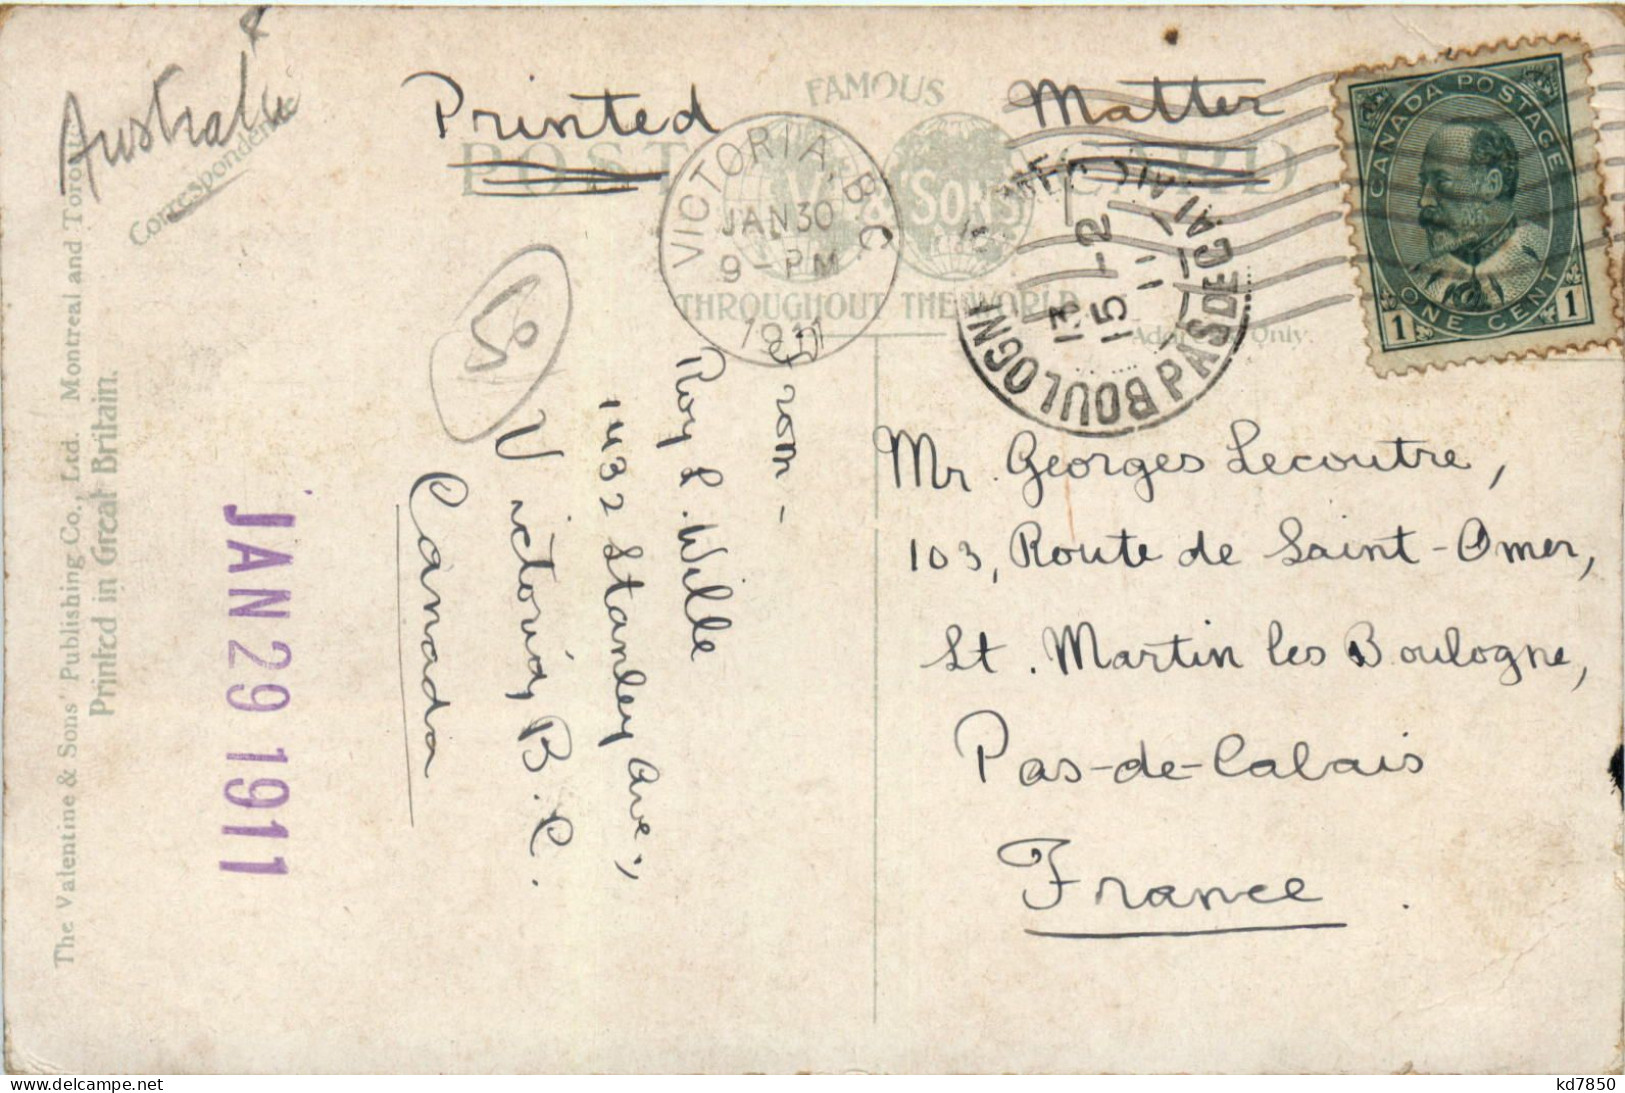 Australie
Correspondence
Printed Matter
FAMOUS
POST CARD
V. & SONS
THROUGHOUT THE WORLD
Address Only.
VICTORIA, B.C.
JAN 30
9 - PM
1911
BOULOGNE
PAS DE CALAIS
13
15 - 2
11
CANADA POSTAGE
ONE CENT
1 1
From -
Roy L. Wille
1432 Stanley Ave.,
Victoria, B.C.
Canada
Mr. Georges Lecoutre,
103, Route de Saint-Omer,
St. Martin les Boulogne,
Pas-de-Calais
France.
JAN 29 1911
The Valentine & Sons' Publishing Co., Ltd. Montreal and Toronto
Printed in Great Britain.
kd7850